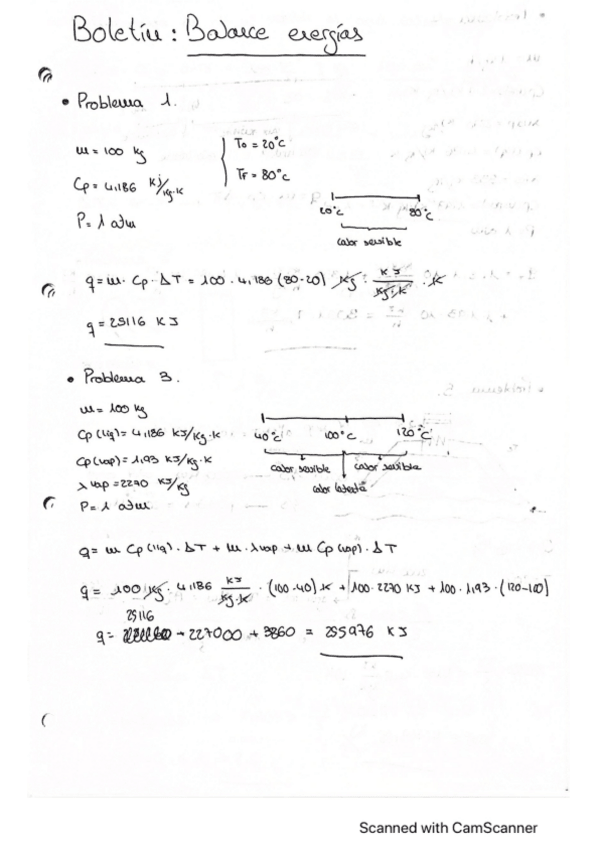 Boletín: Balance energías
• Problema 1.
m = 100 kg
Cp = 4,186 kJ/kg·K
P = 1 atm
To = 20°C
TF = 80°C
20°C 80°C
calor sensible
q = m · Cp · ΔT = 100 · 4,186 (80-20) kg · kJ/kg·K · K
q = 25116 KJ
• Problema 3.
m = 100 kg
Cp(liq) = 4,186 KJ/Kg·K
Cp(vap) = 1,93 KJ/Kg·K
λ vap = 2270 KJ/Kg
P = 1 atm
40°C 100°C 120°C
calor sensible calor sensible
calor latente
q = m Cp(liq) · ΔT + m · λvap + m Cp(vap) · ΔT
q = 100 Kg · 4,186 KJ/Kg·K · (100-40) K + 100 · 2270 KJ + 100 · 1,93 · (120-100)
25116
q = + 227000 + 3860 = 255976 KJ
Scanned with CamScanner